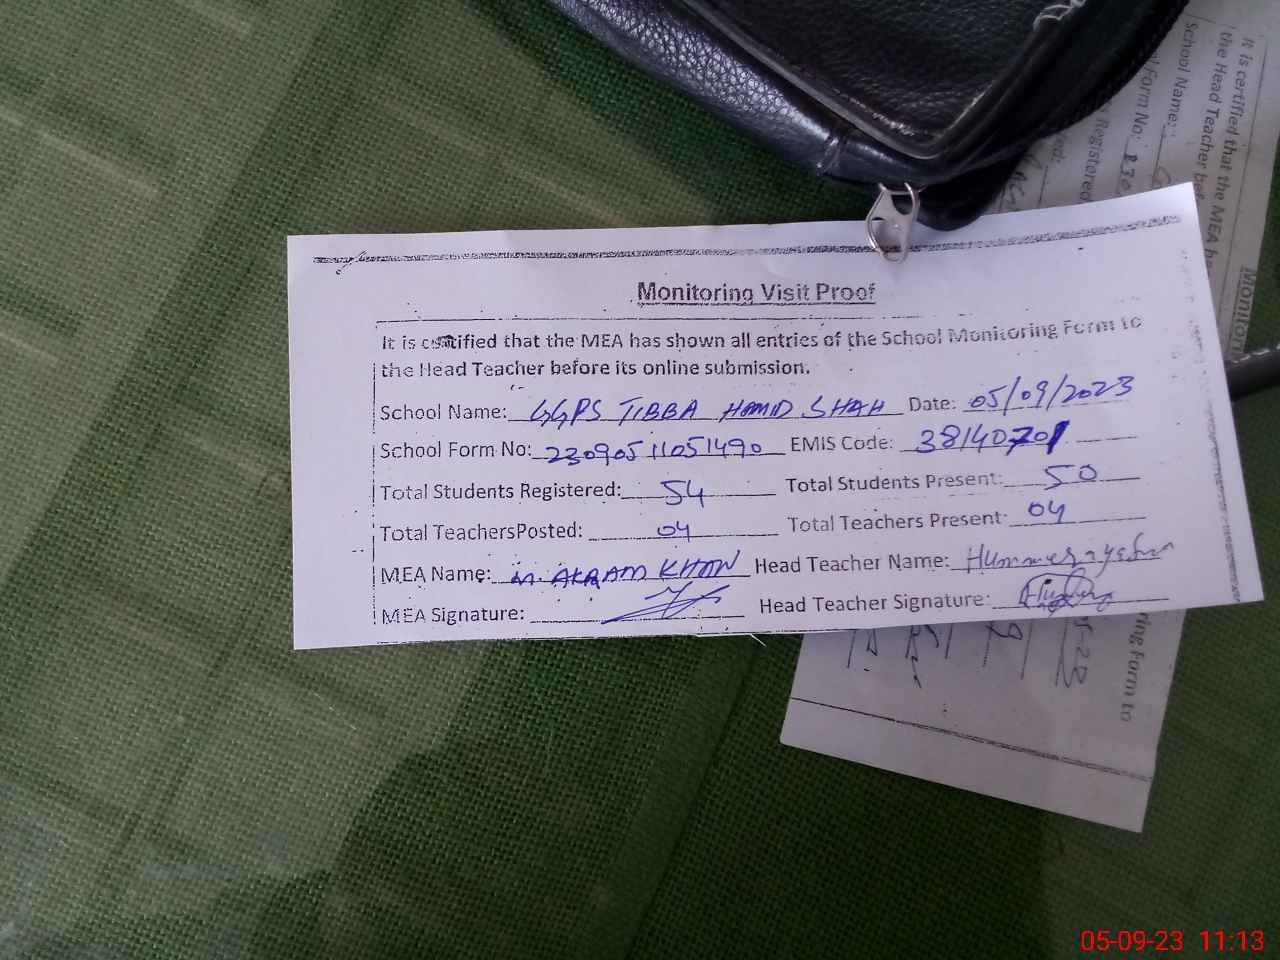 Monitoring Visit Proof
It is certified that the MEA has shown all entries of the School Monitoring Form to
the Head Teacher before its online submission.
School Name: GGPS TIBBA HAMID SHAH Date: 05/09/2023
School Form No: 23090511051490 EMIS Code: 38140701
Total Students Registered: 54 Total Students Present: 50
Total TeachersPosted: 04 Total Teachers Present: 04
MEA Name: M. AKRAM KHAN Head Teacher Name:
MEA Signature: Head Teacher Signature:
It is certified that the MEA ha
the Head Teacher bef
School Name:
l Form No:
Registered
Monitori
ring Form to
05-09-23 11:13